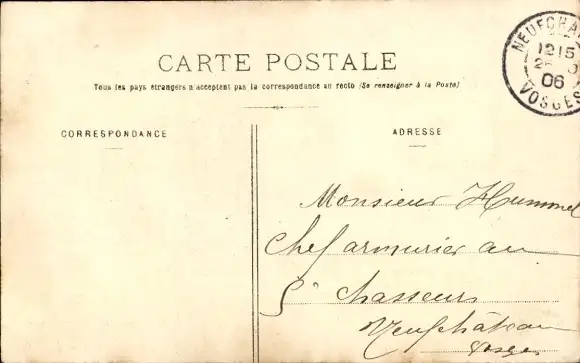 CARTE POSTALE
Tous les pays étrangers n'acceptent pas la correspondance au recto (Se renseigner à la Poste)
CORRESPONDANCE
ADRESSE
NEUFCHA
1215
06
VOSGES
Monsieur Hummel
Chef armurier au
5e Chasseurs
Neufchâteau
Vosges